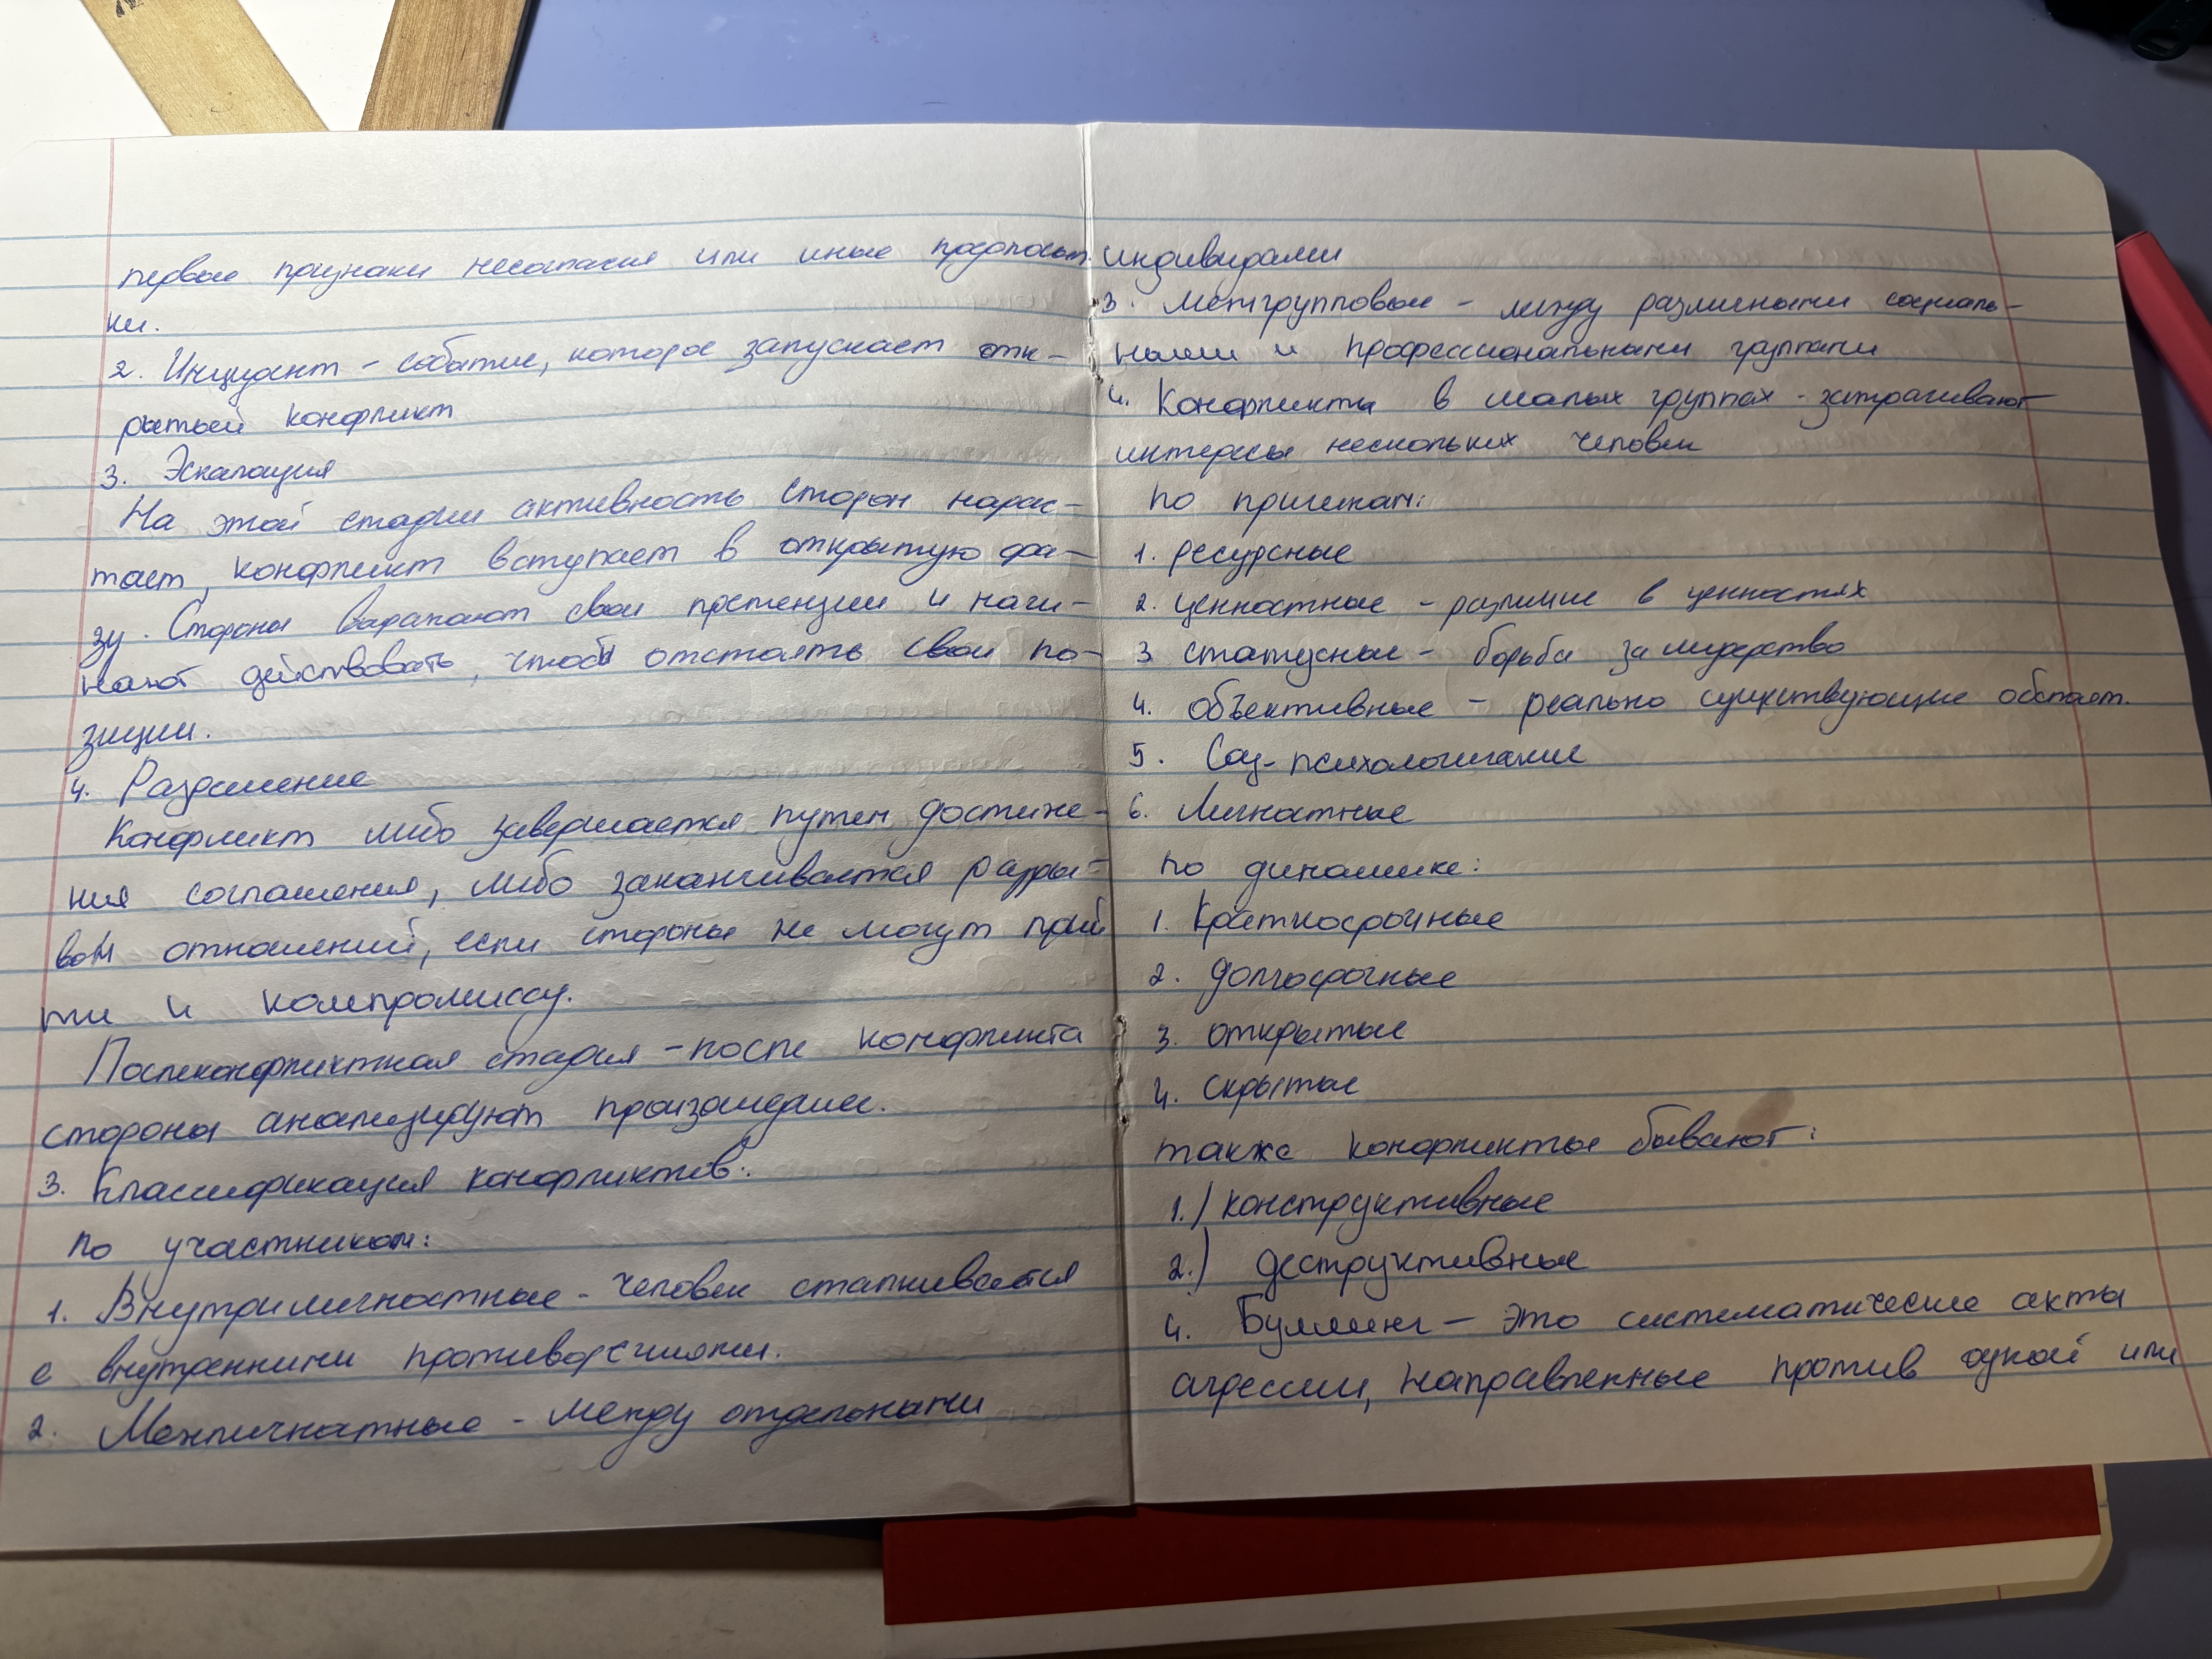 первые признаки несогласия или иные предпосыл.
ки.
2. Инцидент – событие, которое запускает отк–
рытый конфликт
3. Эскалация
На этой стадии активность сторон нарас–
тает, конфликт вступает в открытую фа–
зу. Стороны выражают свои претензии и начи–
нают действовать, чтобы отстоять свои по–
зиции.
4. Разрешение
Конфликт либо завершается путем достиже–
ния соглашения, либо заканчивается разры–
вом отношений, если стороны не могут прий
ти к компромиссу.
Послеконфликтная стадия – после конфликта
стороны анализируют произошедшее.
3. Классификация конфликтов:
по участникам:
1. Внутриличностные – человек сталкивается
с внутренними противоречиями.
2. Межличностные – между отдельными
индивидами
3. Межгрупповые – между различными социаль–
ными и профессиональными группами
4. Конфликты в малых группах – затрагивают
интересы нескольких человек
по причинам:
1. ресурсные
2. ценностные – различие в ценностях
3 статусные – борьба за лидерство
4. объективные – реально существующие обстоят.
5. Соц-психологические
6. Личностные
по динамике:
1. Краткосрочные
2. Долгосрочные
3. открытые
4. скрытые
также конфликты бывают:
1.) конструктивные
2.) деструктивные
4. Буллинг – это систематические акты
агрессии, направленные против одной или